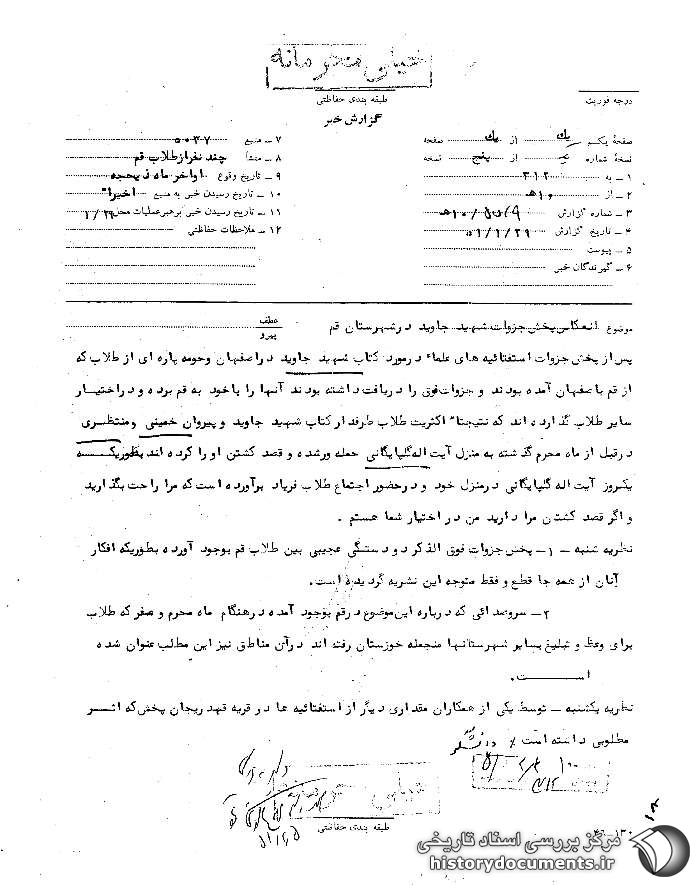 خیلی محرمانه
طبقه بندی حفاظتی
درجه فوریت
گزارش خبر
صفحهٔ یکم یک از یک صفحه
نسخهٔ شماره از پنج نسخه
۱ـ به ۳۱۲
۲ـ از ۱۰هـ
۳ـ شماره گزارش
۴ـ تاریخ گزارش ۵۱/۱/۲۹
۵ـ پیوست
۶ـ گیرندگان خبر
۷ـ منبع ۵۰۳۷
۸ـ منشأ چند نفر از طلاب قم
۹ـ تاریخ وقوع اواخر ماه ذیحجه
۱۰ـ تاریخ رسیدن خبر به منبع اخیرا"
۱۱ـ تاریخ رسیدن خبر برهبر عملیات محل
۱۲ـ ملاحظات حفاظتی
موضوع انعکاس پخش جزوات شهید جاوید در شهرستان قم
عطف
پیرو
پس از پخش جزوات استفتائیه های علماء در مورد کتاب شهید جاوید در اصفهان و حومه پاره ای از طلاب که
از قم باصفهان آمده بودند و جزوات فوق را دریافت داشته بودند آنها را با خود به قم برده و در اختیار
سایر طلاب گذارده اند که نتیجتا" اکثریت طلاب طرفدار کتاب شهید جاوید و پیروان خمینی و منتظری
در قبل از ماه محرم گذشته به منزل آیت اله گلپایگانی حمله ور شده و قصد کشتن او را کرده اند بطوریکه
یکروز آیت اله گلپایگانی در منزل خود و در حضور اجتماع طلاب فریاد برآورده است که مرا راحت بگذارید
و اگر قصد کشتن مرا دارید من در اختیار شما هستم .
نظریه شنبه ـ ۱ـ پخش جزوات فوق الذکر دو دستگی عجیبی بین طلاب قم بوجود آورده بطوریکه افکار
آنان از همه جا قطع و فقط متوجه این نشریه گردیده است .
۲ـ سروصدائی که درباره این موضوع در قم بوجود آمده در هنگام ماه محرم و صفر که طلاب
برای وعظ و تبلیغ بسایر شهرستانها منجمله خوزستان رفته اند در آن مناطق نیز این مطلب عنوان شده
است .
نظریه یکشنبه ـ توسط یکی از همکاران مقداری دیگر از استفتائیه ها در قریه قهدریجان پخش که اثر
مطلوبی داشته است
خیلی
طبقه بندی حفاظتی
مرکز بررسی اسناد تاریخی
historydocuments.ir